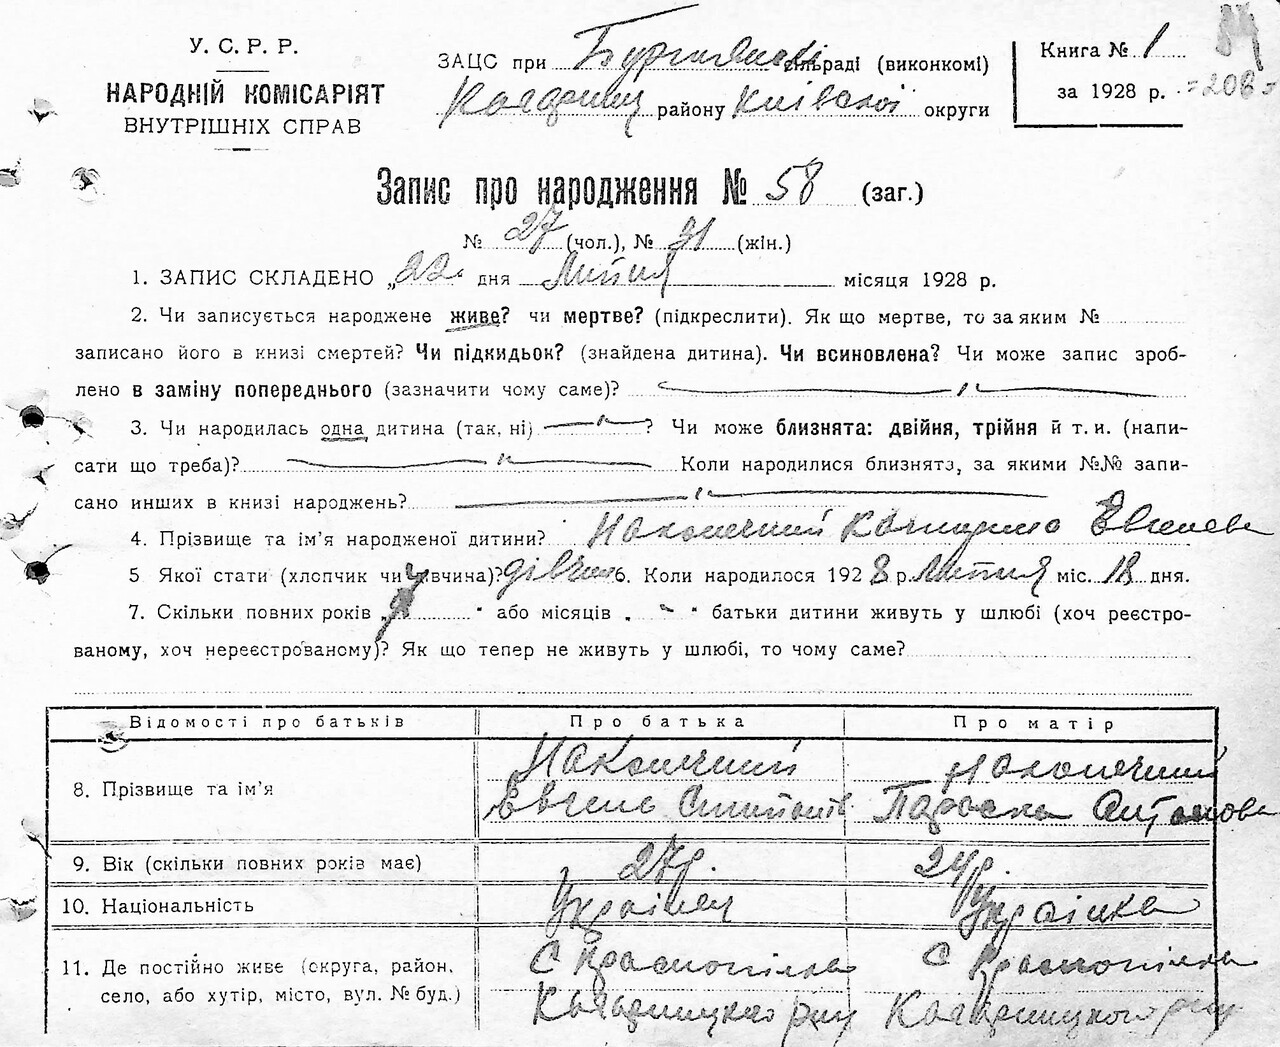 У. С. Р. Р.
НАРОДНІЙ КОМІСАРІЯТ
ВНУТРІШНІХ СПРАВ
ЗАЦС при сільраді (виконкомі)
району Київської округи
Книга № 1
за 1928 р.
=208=
Запис про народження № 58 (заг.)
№ 27 (чол.), № 31 (жін.)
1. ЗАПИС СКЛАДЕНО „22 дня Липня місяця 1928 р.
2. Чи записується народжене живе? чи мертве? (підкреслити). Як що мертве, то за яким №
записано його в книзі смертей? Чи підкидьок? (знайдена дитина). Чи всиновлена? Чи може запис зроб-
лено в заміну попереднього (зазначити чому саме)?
3. Чи народилась одна дитина (так, ні) ? Чи може близнята: двійня, трійня й т. и. (напи-
сати що треба)? Коли народилися близнята, за якими №№ запи-
сано инших в книзі народжень?
4. Прізвище та ім'я народженої дитини? Наконечний Катерина Евгенева
5 Якої стати (хлопчик чи дівчина)? дівчин 6. Коли народилося 1928 р. Липня міс. 18 дня.
7. Скільки повних років „ " або місяців „ " батьки дитини живуть у шлюбі (хоч реєстро-
ваному, хоч нереєстрованому)? Як що тепер не живуть у шлюбі, то чому саме?
Відомості про батьків Про батька Про матір
8. Прізвище та ім'я Наконечний Наконечний
Евгень Параска Антонова
9. Вік (скільки повних років має) 27 р. 24 р.
10. Національність Українец Українка
11. Де постійно живе (округа, район, С Краснопілка С Краснопілка
село, або хутір, місто, вул. № буд.)